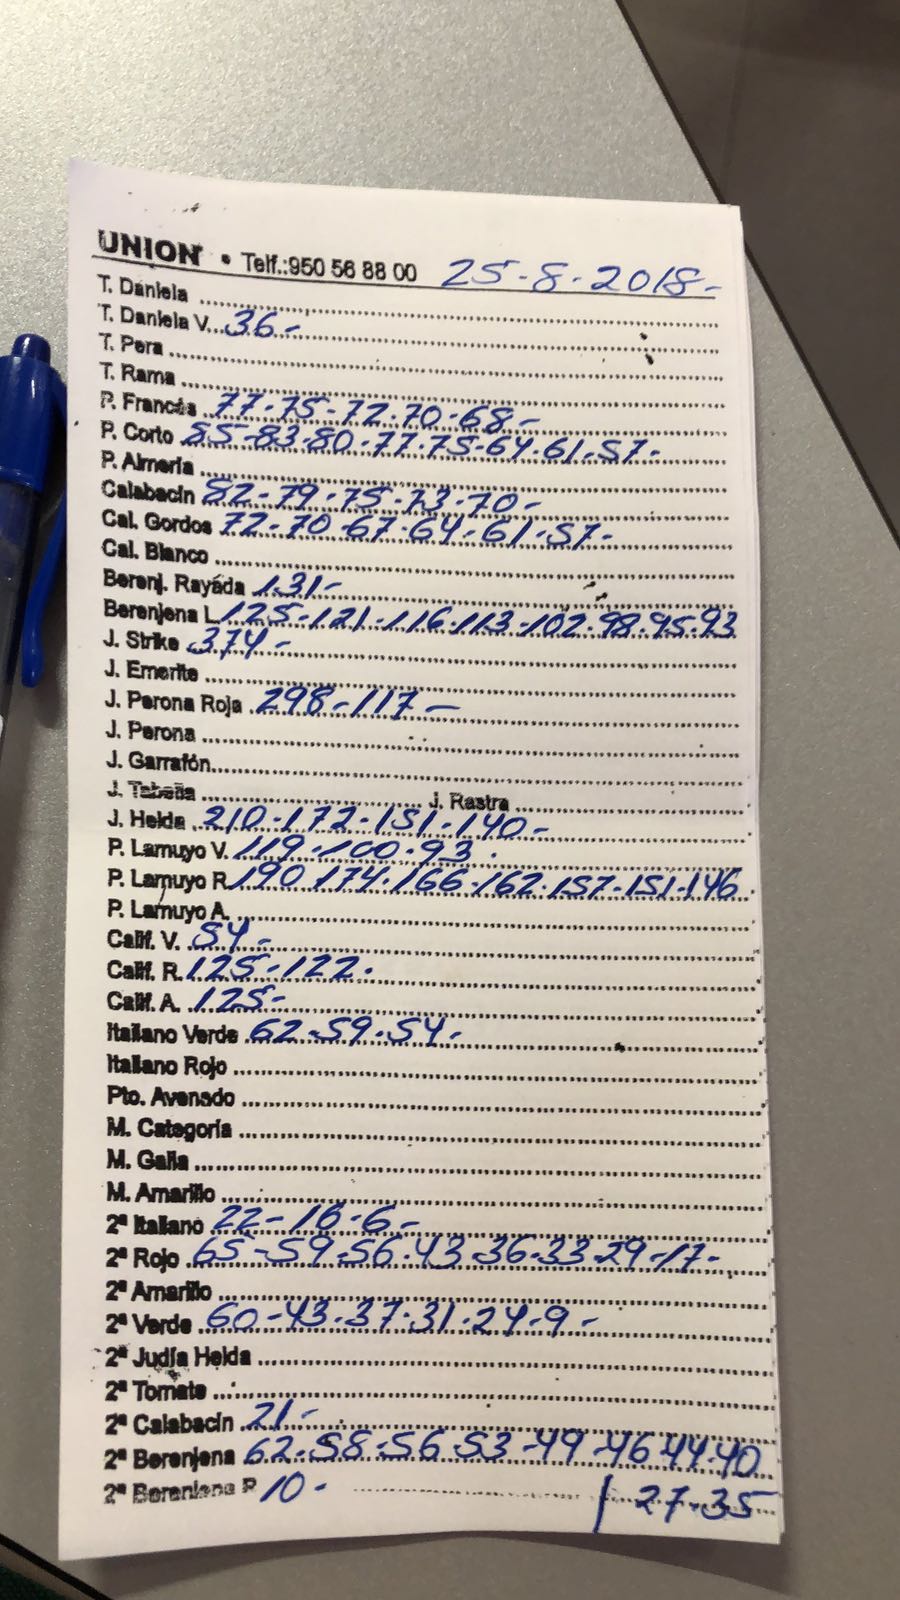 UNION • Telf.:950 56 88 00 25-8-2018-
T. Daniela
T. Daniela V. 36-
T. Pera
T. Rama
P. Francés 77-75-72-70-68-
P. Corto 85-83-80-77-75-64-61-57-
P. Almería
Calabacín 82-79-75-73-70-
Cal. Gordos 72-70-67-64-61-57-
Cal. Blanco
Berenj. Rayada 131-
Berenjena L. 125-121-116-113-102-98-95-93
J. Strike 374-
J. Emerite
J. Perona Roja 298-117-
J. Perona
J. Garrafón
J. Tabella J. Rastra
J. Helda 210-172-151-140-
P. Lamuyo V. 119-100-93.
P. Lamuyo R. 190 174-166-162-157-151-146
P. Lamuyo A.
Calif. V. 54-
Calif. R. 125-122.
Calif. A. 125-
Italiano Verde 62-59-54-
Italiano Rojo
Pto. Avenado
M. Categoría
M. Galia
M. Amarillo
2ª Italiano 22-16-6-
2ª Rojo 65-59-56-43-36-33-29-17-
2ª Amarillo
2ª Verde 60-43-37-31-24-9-
2ª Judía Helda
2ª Tomate
2ª Calabacín 21-
2ª Berenjena 62-58-56 53-49-46-44-40
2ª Berenjena R 10- 27-35